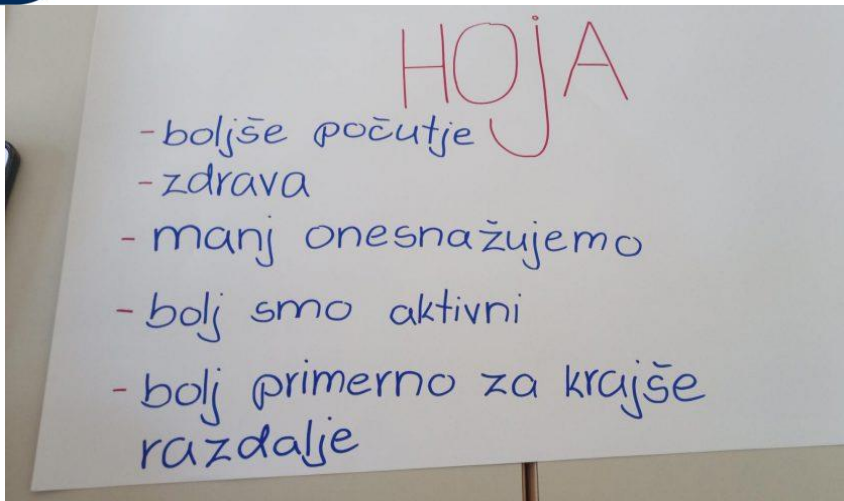 HOJA
- boljše počutje
- zdrava
- manj onesnažujemo
- bolj smo aktivni
- bolj primerno za krajše
razdalje